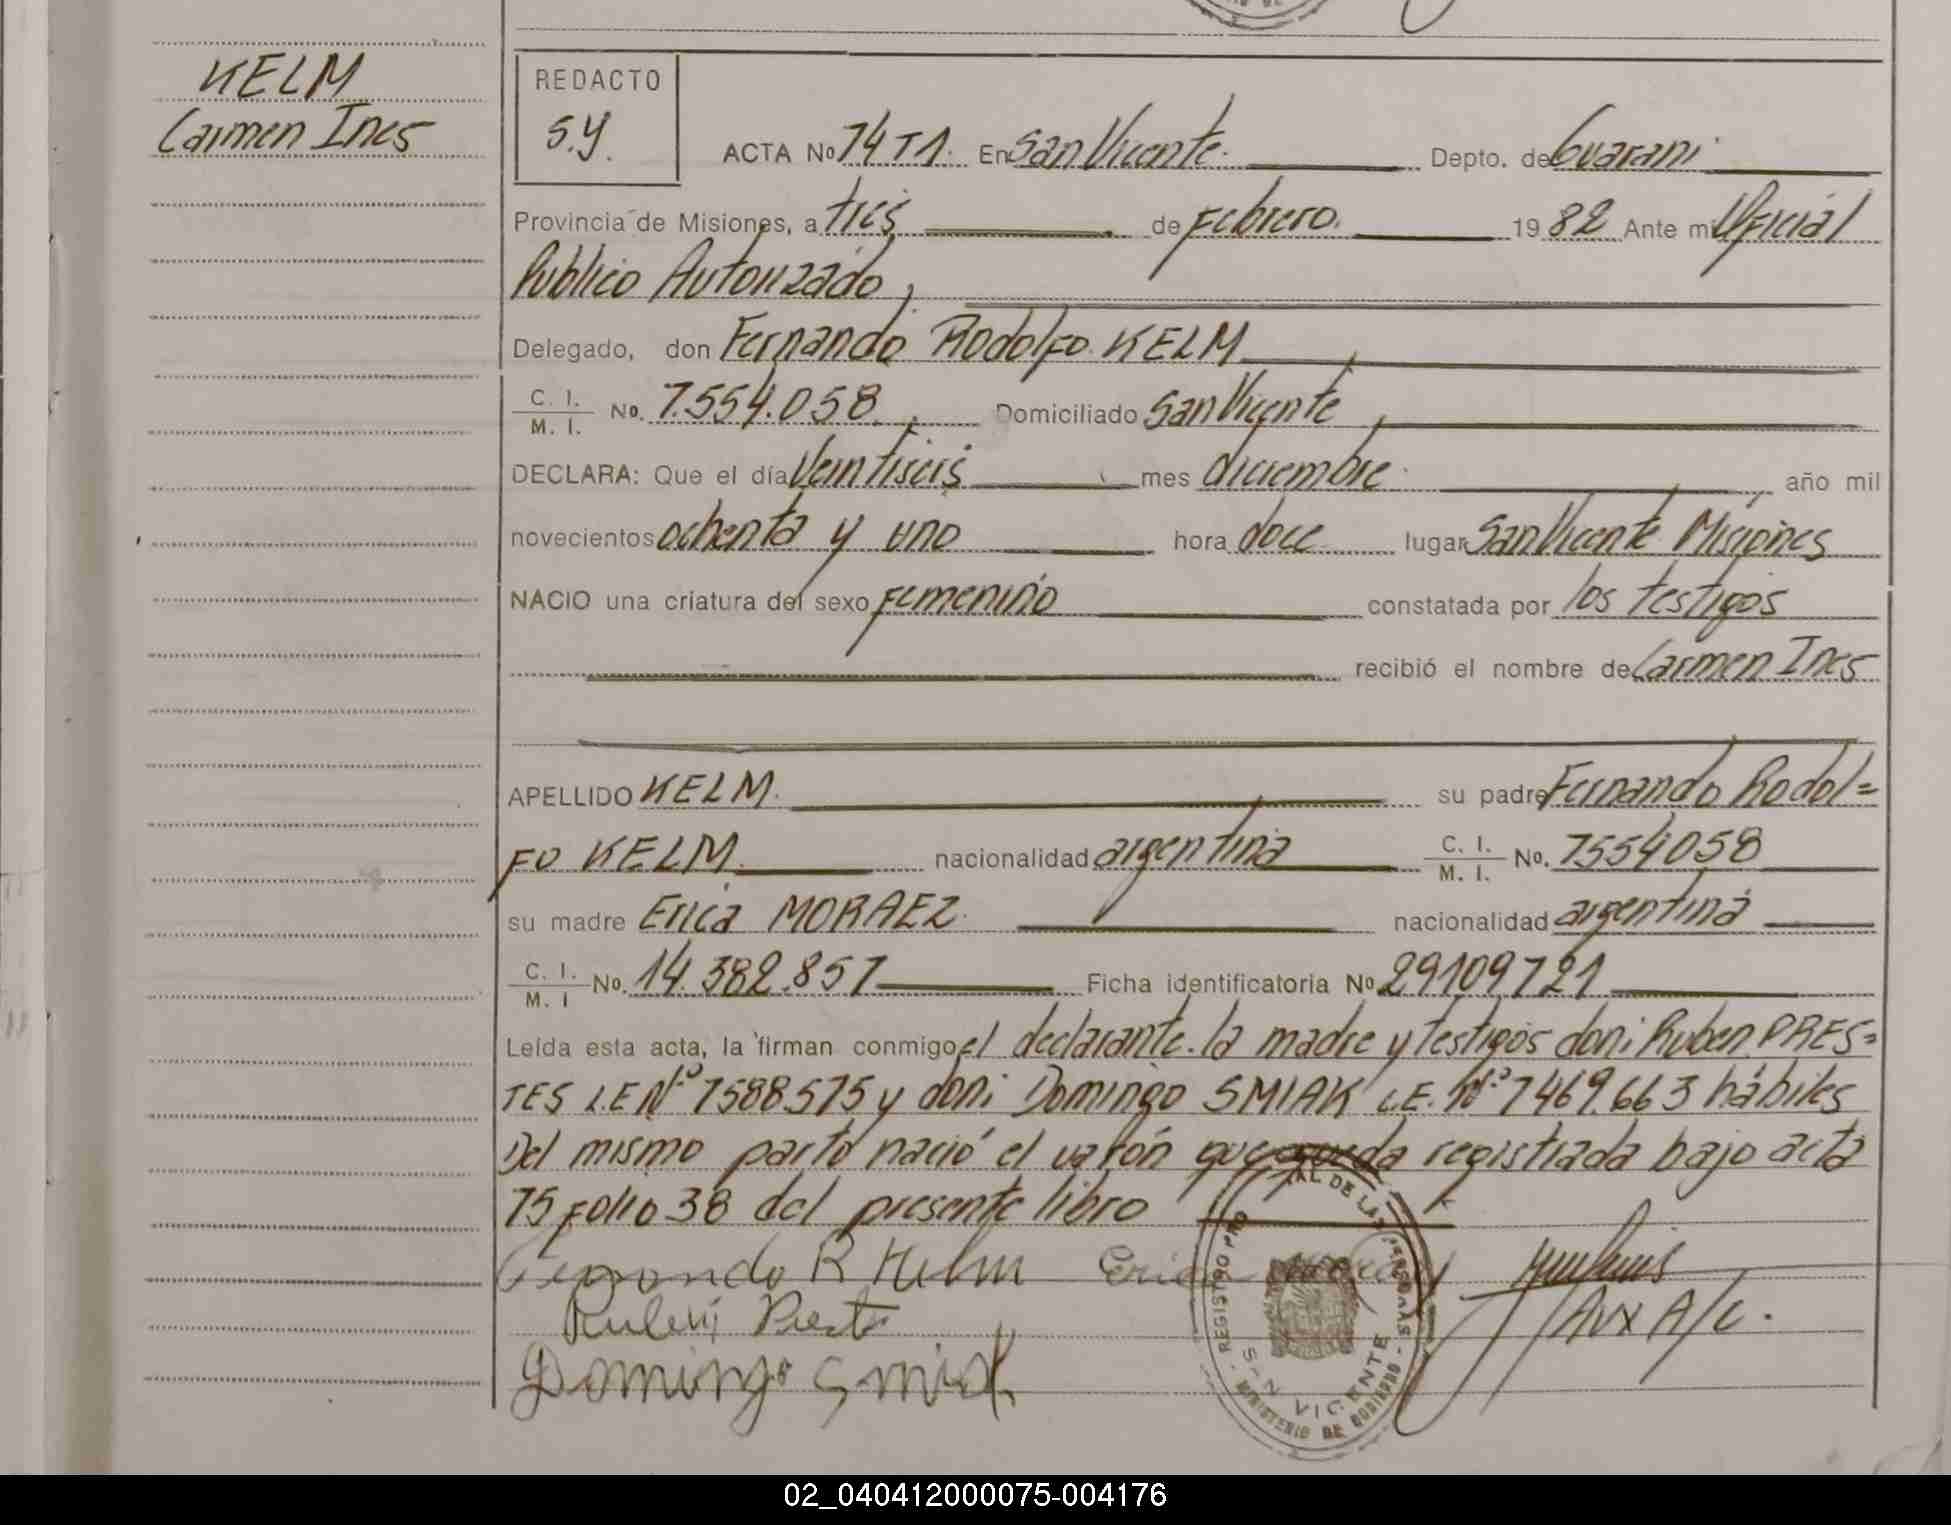 KELM
Carmen Ines
REDACTO
S.Y.
ACTA No 74 T1. En San Vicente. Depto. de Guarani
Provincia de Misiones, a tres de Febrero. 1982 Ante mi Oficial
Publico Autorizado,
Delegado, don Fernando Rodolfo KELM,
C. I. / M. I. No. 7.554.058, Domiciliado San Vicente,
DECLARA: Que el día Veintiseis mes diciembre año mil
novecientos ochenta y uno hora doce lugar San Vicente, Misiones
NACIO una criatura del sexo femenino constatada por los testigos
recibió el nombre de Carmen Ines
APELLIDO KELM. su padre Fernando Rodol=
FO KELM. nacionalidad argentina C. I. / M. I. No. 7554058
su madre Erica MORAEZ. nacionalidad argentina
C. I. / M. I No. 14.382.857 Ficha identificatoria No 29109721
Leída esta acta, la firman conmigo, el declarante. la madre y testigos don: Ruben PRES=
TES L.E Nº 7588575 y don: Domingo SMIAK L.E. Nº 7469.663 hábiles
Del mismo parto nació el varón que queda registrada bajo acta
75 folio 38 del presente libro
Fernando R Kelm Erica
Ruben Prest
Aux A/C.
Domingo Smiak
REGISTRO PRO AL DE LAS PERSONAS
SAN VICENTE
MINISTERIO DE GOBIERNO
02_040412000075-004176